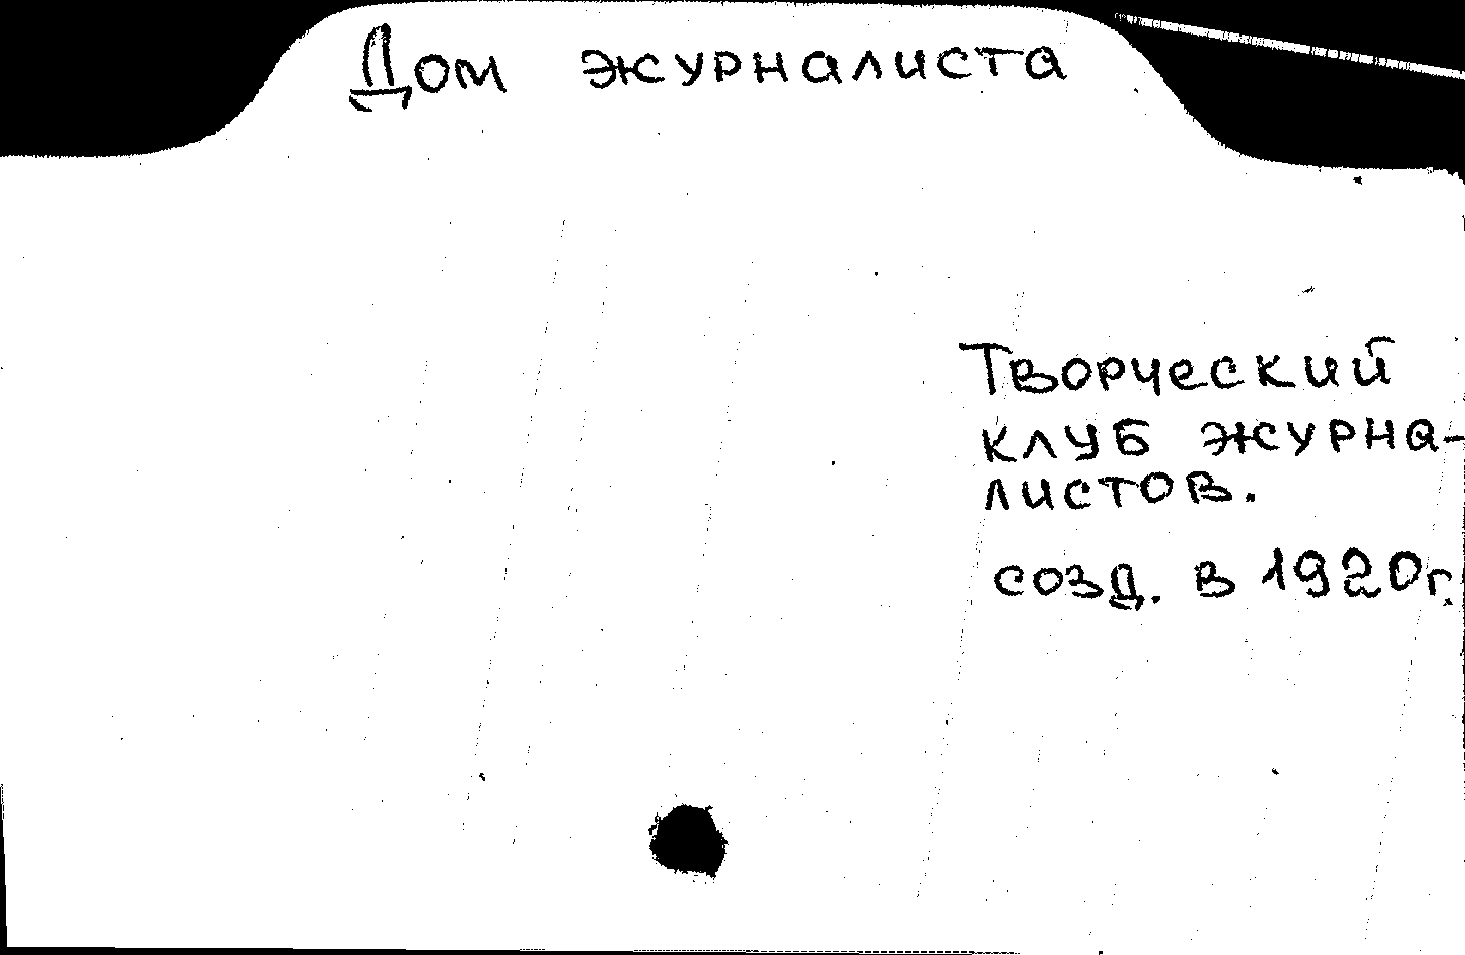 Дом журналиста
Творческий
клуб журна-
листов.
созд. в 1920г.